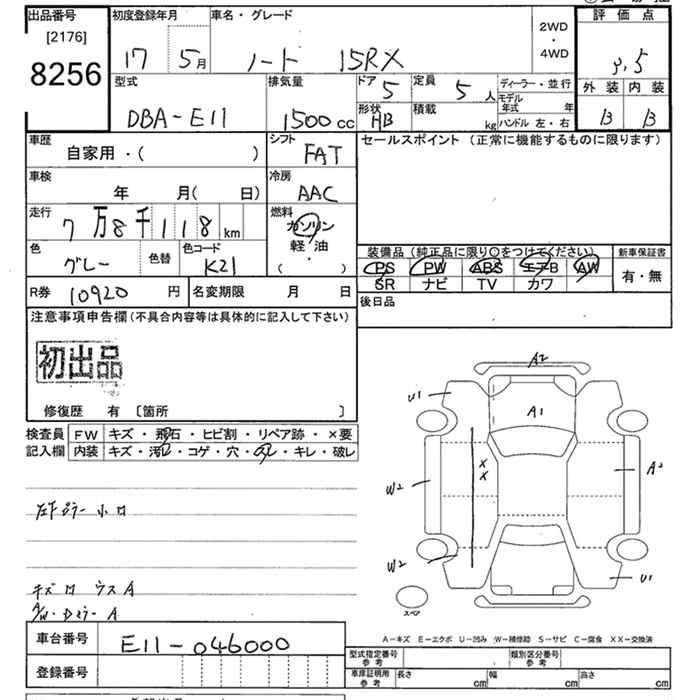 出品番号
[2176]
8256
初度登録年月
17 5月
車名・グレード
ノート 15RX
2WD
・
4WD
評価点
3.5
外装 内装
B B
型式
DBA-E11
排気量
1500cc
ドア
5
形状
HB
定員
5人
積載
kg
ディーラー・並行
モデル年式 年
ハンドル 左・右
車歴
自家用・( )
シフト
FAT
セールスポイント (正常に機能するものに限ります)
車検
年 月( 日)
冷房
AAC
走行
7万8千118km
燃料
ガソリン
軽・油
・
( )
色
グレー
色替
色コード
K21
装備品 (純正品に限り○をつけてください)
PS PW ABS エアB AW
SR ナビ TV カワ
新車保証書
有・無
R券 10920円
名変期限 月 日
後日品
注意事項申告欄(不具合内容等は具体的に記入して下さい)
初出品
修復歴 有 〔箇所 〕
検査員記入欄
FW キズ・飛石・ヒビ割・リペア跡・×要
内装 キズ・汚れ・コゲ・穴・スレ・キレ・破レ
A2
U1
A1
W2
X
X
A2
W2
U1
スペア
キズ ロ ウス A
A/W・Dミラー A
A-キズ E-エクボ U-凹み W-補修跡 S-サビ C-腐食 XX-交換済
車台番号
E11-046000
登録番号
型式指定番号 参考
類別区分番号 参考
車庫証明用 参考
長さ cm
幅 cm
高さ cm